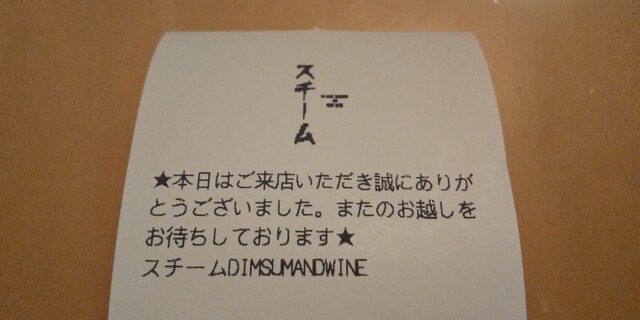 スチーム
★本日はご来店いただき誠にありが
とうございました。またのお越しを
お待ちしております★
スチームDIMSUMANDWINE